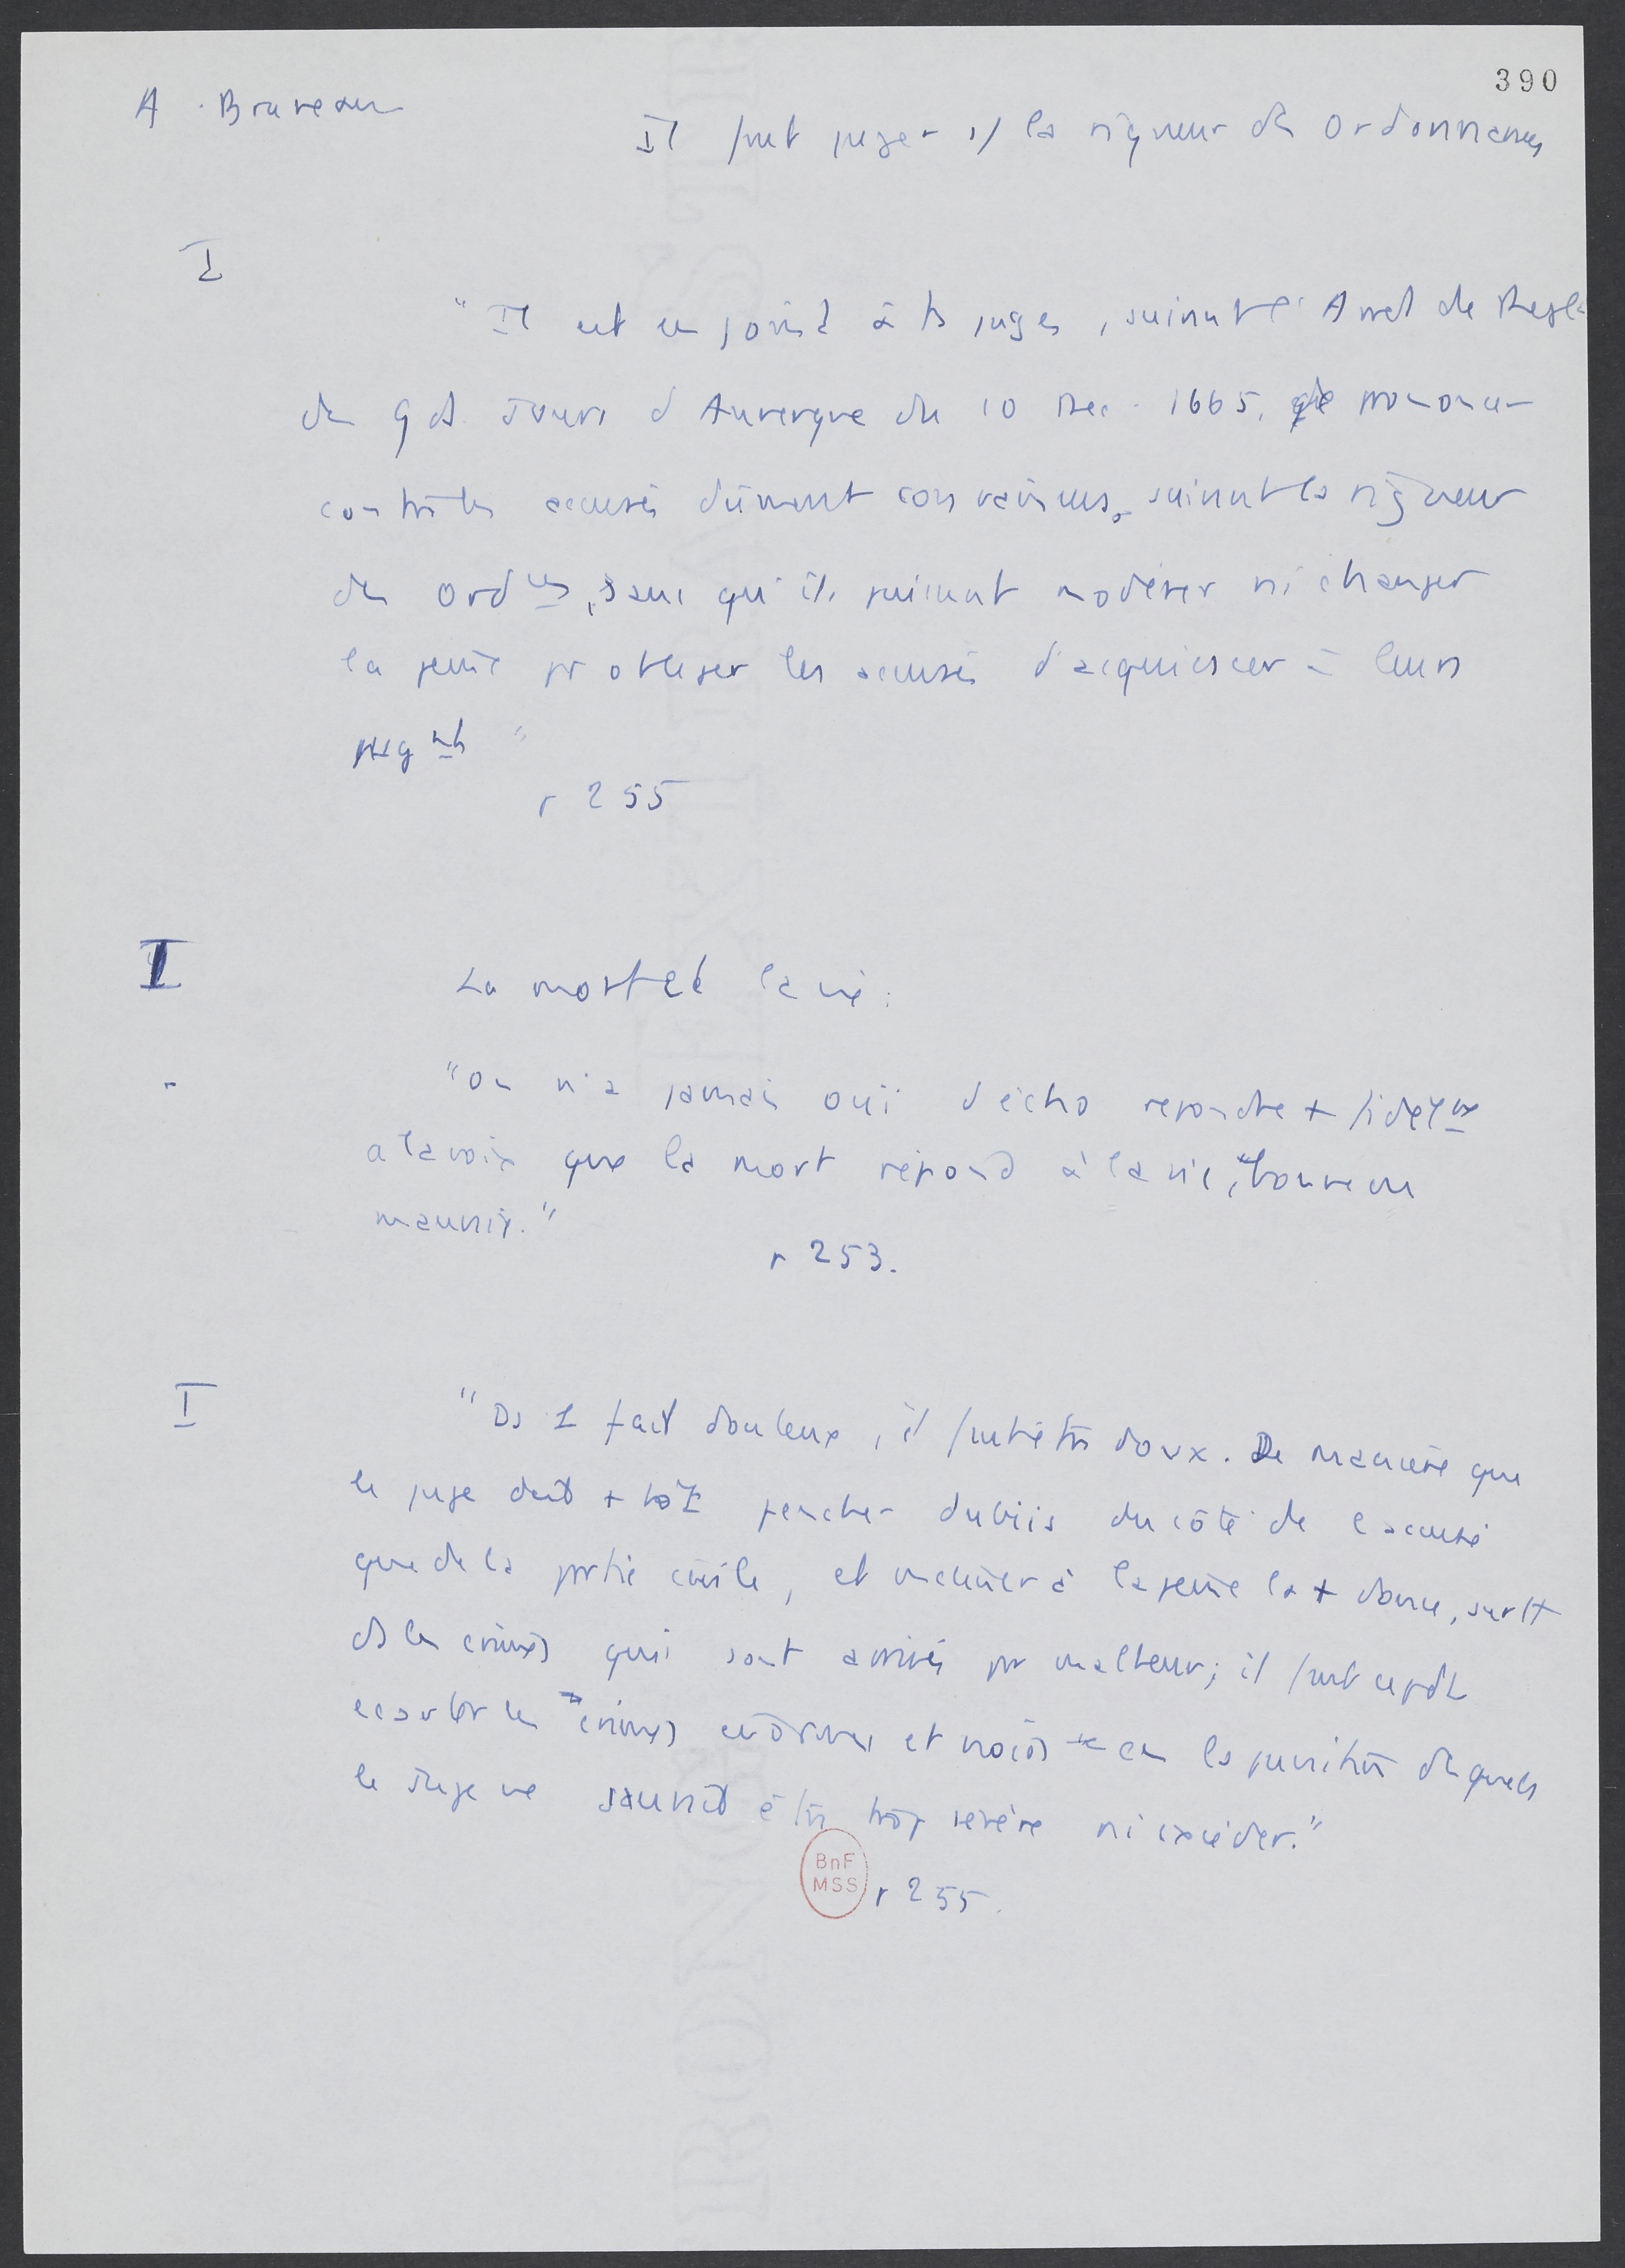 390
A. Bruneau
Il faut juger s/ la rigueur des Ordonnances
I
"Il est enjoint à ts juges, suivant l'Arret de Regl.
des gds Jours d'Auvergne du 10 Dec. 1665, de prononcer
contre les accusés dûment convaincus, suivant la rigueur
des Ordces, sans qu'ils puissent modérer ni changer
la peine pr obliger les accusés d'acquiescer à leurs
jugmts"
p 255
I
La mort et la vie:
"On n'a jamais ouï d'écho repondre + fidelmt
a la voix que la mort répond à la vie, bonne ou
mauvaise."
p 253.
I
"Ds 1 fait douteux, il faut être doux. De manière que
le juge doit + tôt pencher dubiis du côté de l'accusé
que de la partie civile, et incliner à la peine la + douce, surtt
ds les crimes qui sont arrivés par malheur; il faut cepdt
écarter les crimes enormes et noirs en la punition desquels
le Juge ne saurait être trop sévère ni excéder."
BnF
MSS
p 255.